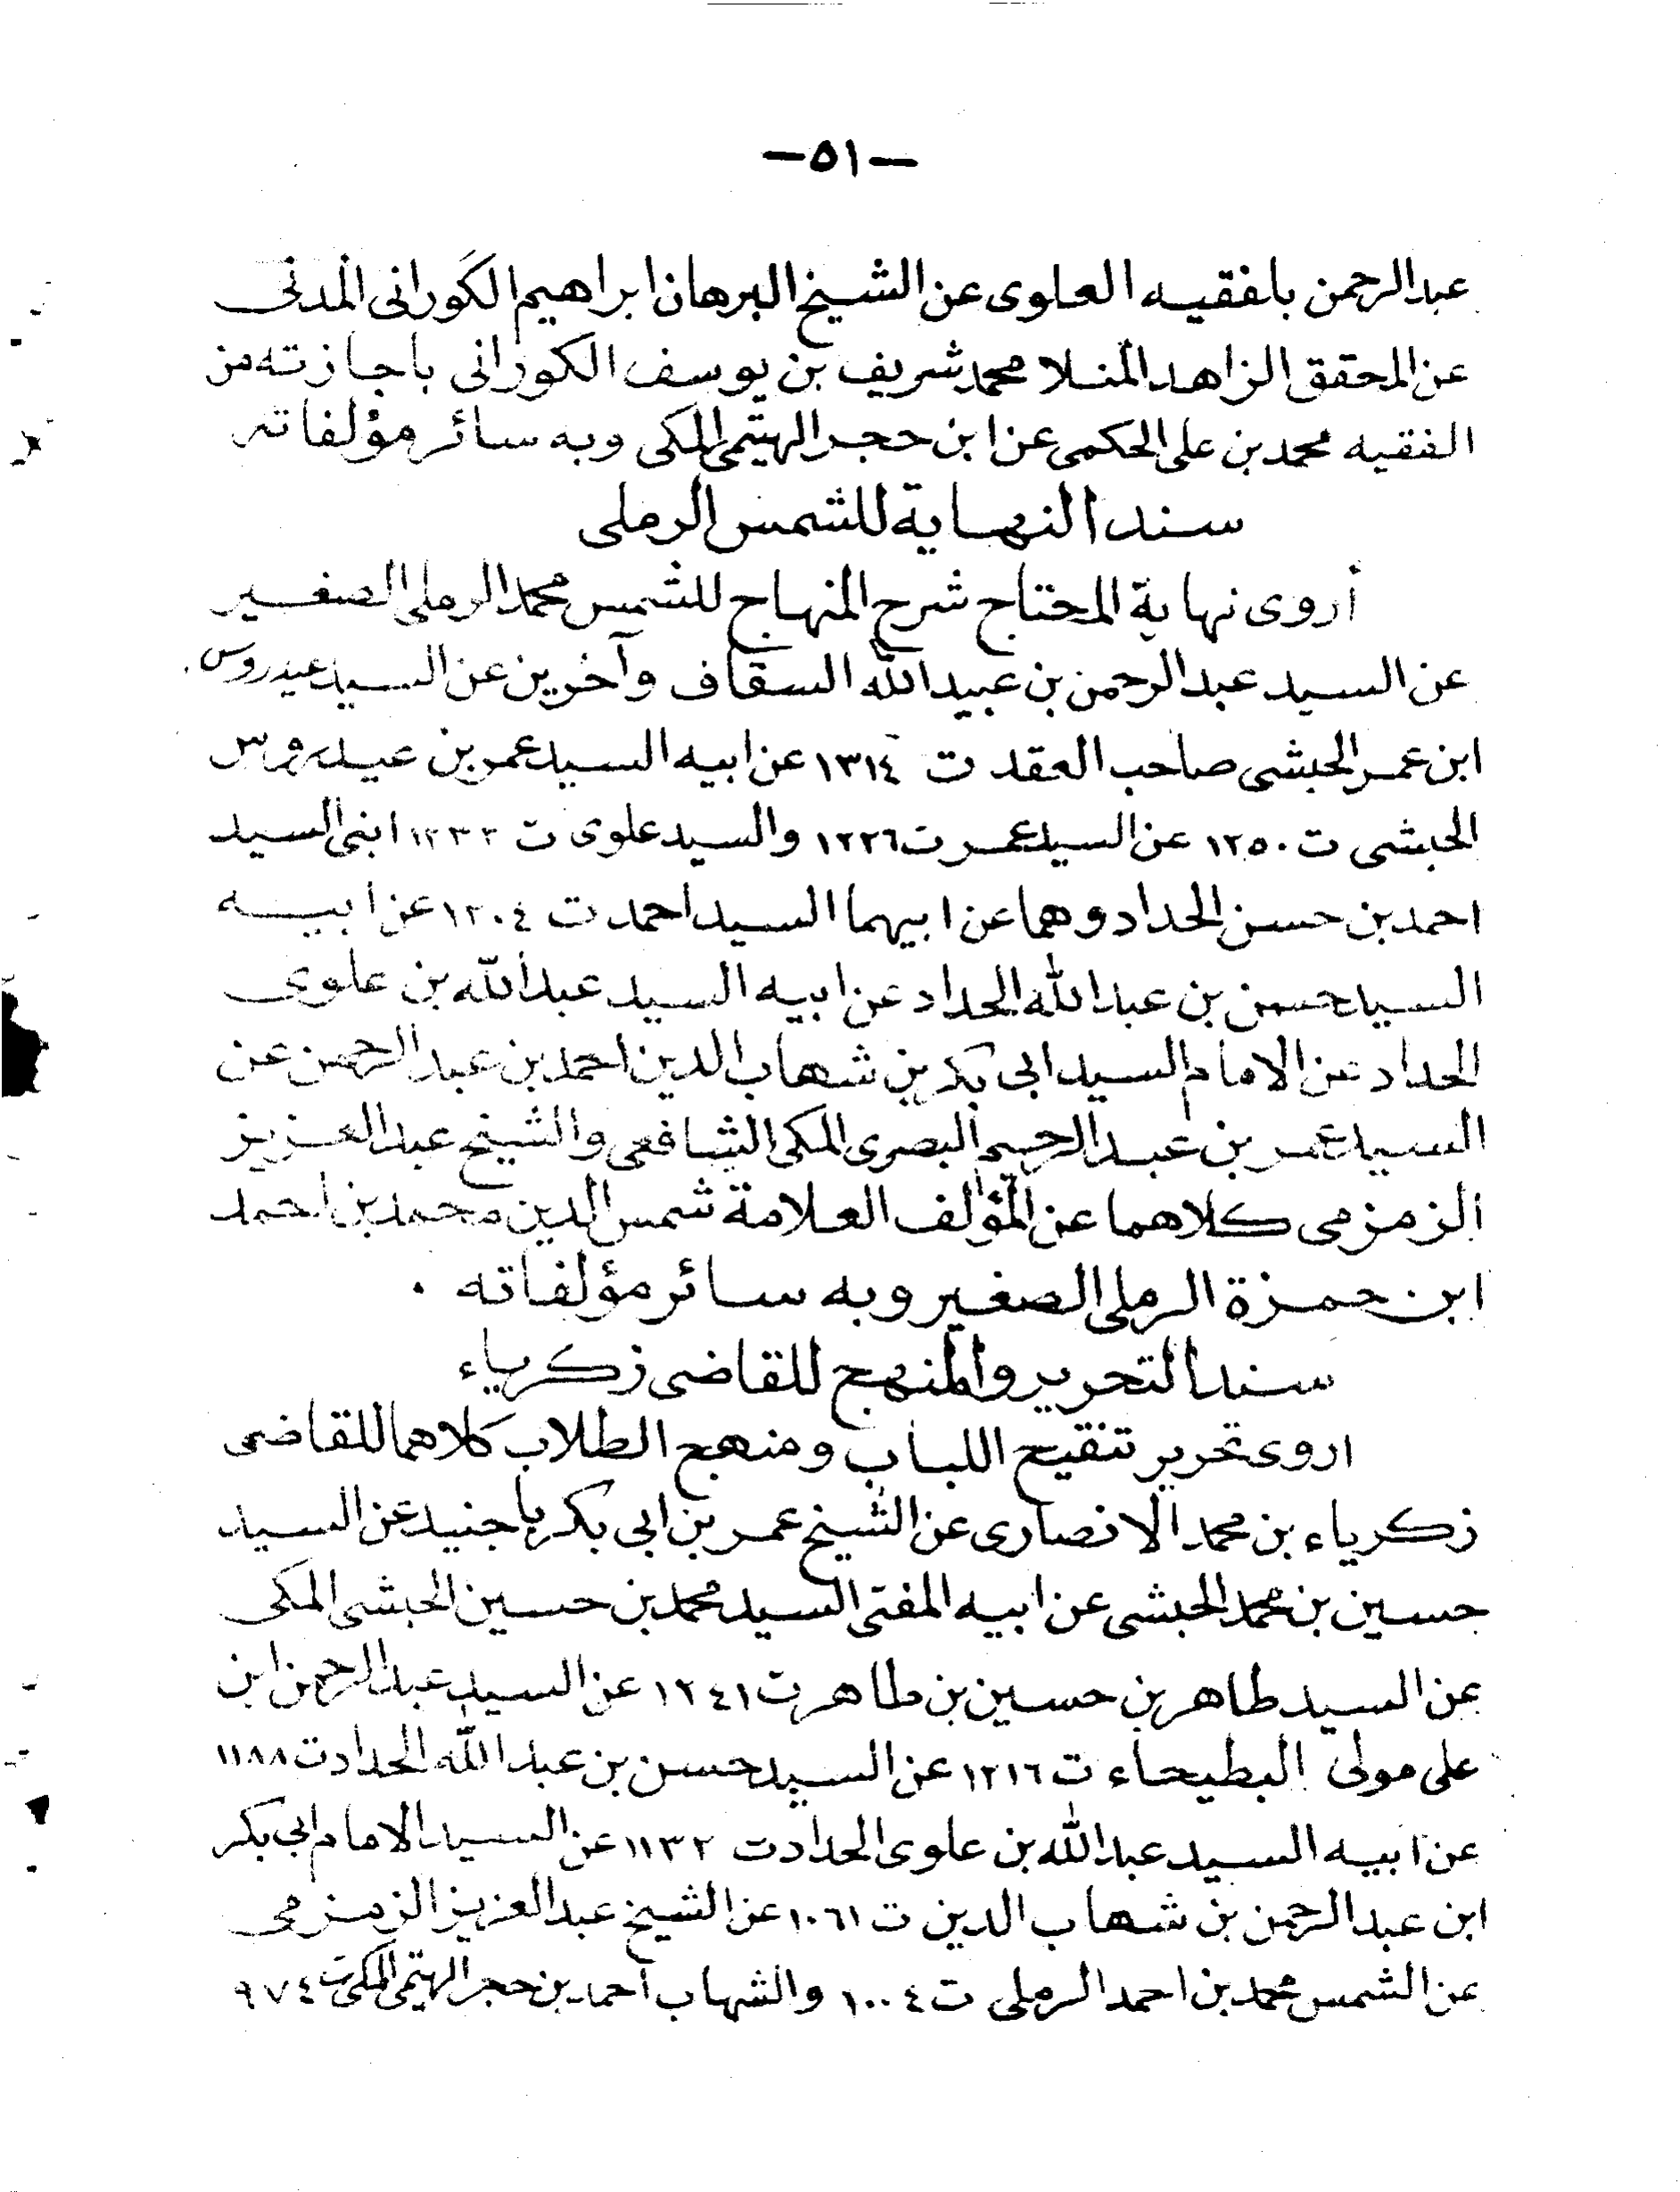 —٥١—
عبدالرحمن بافقيه العلوى عن الشيخ البرهان ابراهيم الكورانى المدنى
عن المحقق الزاهد المنلا محمد شريف بن يوسف الكورانى باجازته من
الفقيه محمد بن على الحكمى عن ابن حجر الهيتمى المكى وبه سائر مؤلفاته
سند النهاية للشمس الرملى
أروى نهاية المحتاج شرح المنهاج للشمس محمد الرملى الصغير
عن السيد عبد الرحمن بن عبيد الله السقاف وآخرين عن السيد عيدروس
ابن عمر الحبشى صاحب العقد ت ١٣١٤ عن ابيه السيد عمر بن عيدروس
الحبشى ت ١٢٥٠ عن السيد عمر ت ١٢٢٦ والسيد علوى ت ١٢٣٢ ابنى السيد
احمد بن حسن الحداد وهما عن ابيهما السيد احمد ت ١٢٠٤ عن ابيه
السيد حسن بن عبد الله الحداد عن ابيه السيد عبد الله بن علوى
الحداد عن الامام السيد ابى بكر بن شهاب الدين احمد بن عبد الرحمن عن
السيد عمر بن عبد الرحيم البصرى المكى الشافعى والشيخ عبد العزيز
الزمزمى كلاهما عن المؤلف العلامة شمس الدين محمد بن احمد
ابن حمزة الرملى الصغير وبه سائر مؤلفاته .
سند التحرير والمنهج للقاضى زكرياء
اروى تحرير تنقيح اللباب ومنهج الطلاب كلاهما للقاضى
زكرياء بن محمد الانصارى عن الشيخ عمر بن ابى بكر باجنيد عن السيد
حسين بن محمد الحبشى عن ابيه المفتى السيد محمد بن حسين الحبشى المكى
عن السيد طاهر بن حسين بن طاهر ت ١٢٤١ عن السيد عبد الرحمن ابن
على مولى البطيحاء ت ١٢١٦ عن السيد حسن بن عبد الله الحداد ت ١١٨٨
عن ابيه السيد عبد الله بن علوى الحداد ت ١١٣٢ عن السيد الامام ابى بكر
ابن عبد الرحمن بن شهاب الدين ت ١٠٦١ عن الشيخ عبد العزيز الزمزمى
عن الشمس محمد بن احمد الرملى ت ١٠٠٤ والشهاب احمد بن حجر الهيتمى المكى ت ٩٧٤